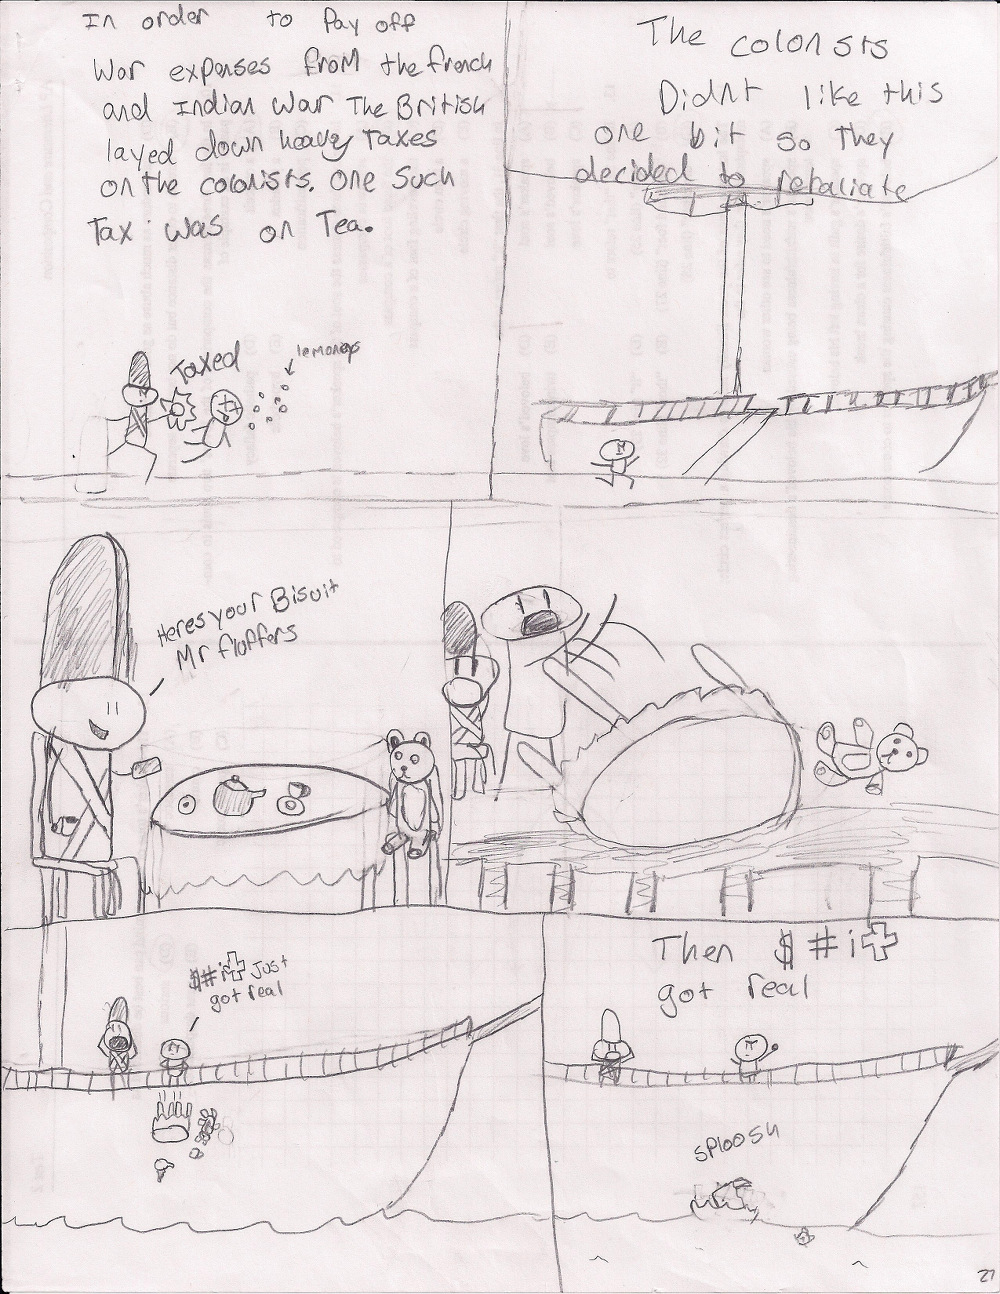 In order to Pay off
War expenses from the french
and Indian War The British
layed down heavy Taxes
on the colonists. one such
Tax was on Tea.
Taxed
lemoneys
The colonists
Didnt like this
one bit so they
decided to retaliate
Heres your Bisuit
Mr fluffers
$#i✞ Just
got real
Then $#i✞
got real
sploosh
27